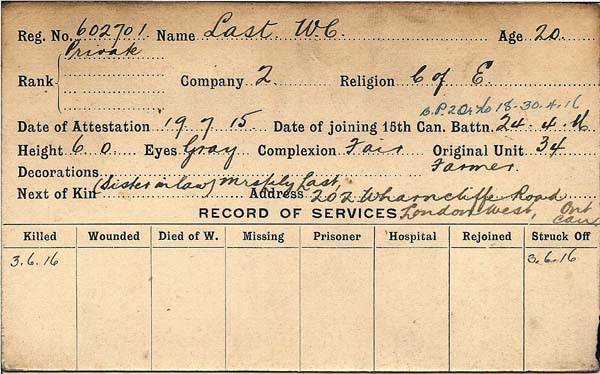 Reg. No. 602701. Name Last W.C. Age 20.
Private
Rank Company 2 Religion C of E
B.P.2 D. to 18-30.4.16
Date of Attestation 19 7 15 Date of joining 15th Can. Battn. 24.4.16
Height 6.0. Eyes Gray Complexion Fair Original Unit 34
Decorations Farmer.
Next of Kin (Sister in law) Mrs Last Address 202 Wharncliffe Road
RECORD OF SERVICES London West, Ont Can
Killed Wounded Died of W. Missing Prisoner Hospital Rejoined Struck Off
3.6.16 3.6.16